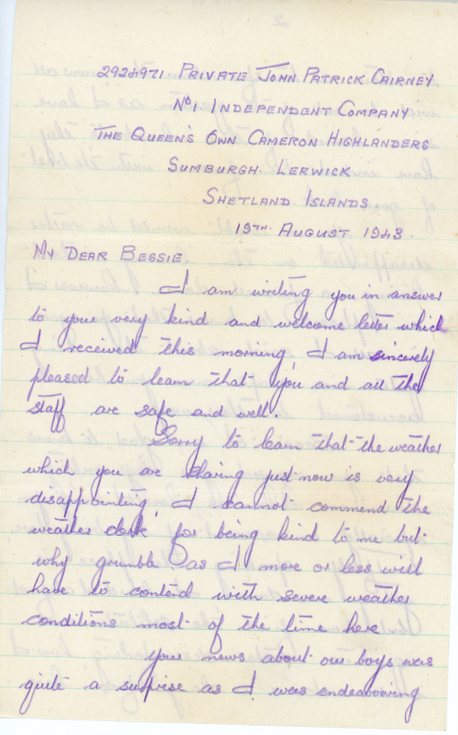 2924971 PRIVATE JOHN PATRICK CAIRNEY
No 1. INDEPENDENT COMPANY
THE QUEEN'S OWN CAMERON HIGHLANDERS
SUMBURGH. LERWICK
SHETLAND ISLANDS
19TH. AUGUST 1943.
MY DEAR BESSIE
I am writing you in answer
to your very kind and welcome letter which
I received this morning, I am sincerely
pleased to learn that you and all the
staff are safe and well.
Sorry to learn that the weather
which you are having just now is very
disappointing, I cannot commend the
weather clerk for being kind to me but
why grumble as I more or less will
have to contend with severe weather
conditions most of the time here
your news about our boys was
quite a surprise as I was endeavouring